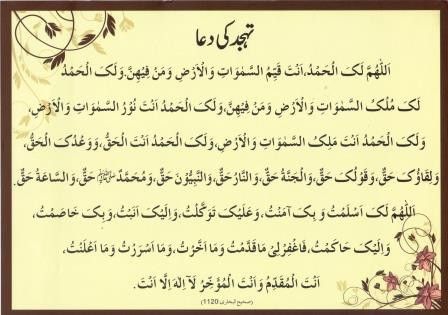 تہجد کی دعا
اَللّٰهُمَّ لَکَ الْحَمْدُ،اَنْتَ قَیِّمُ السَّمٰوَاتِ وَالْاَرْضِ وَمَنْ فِیْهِنَّ.وَلَکَ الْحَمْدُ
لَکَ مُلْکُ السَّمٰوَاتِ وَالْاَرْضِ وَمَنْ فِیْهِنَّ،وَلَکَ الْحَمْدُ اَنْتَ نُوْرُ السَّمٰوَاتِ وَالْاَرْضِ،
وَلَکَ الْحَمْدُ اَنْتَ مَلِکُ السَّمٰوَاتِ وَالْاَرْضِ،وَلَکَ الْحَمْدُ اَنْتَ الْحَقُّ،وَوَعْدُکَ الْحَقُّ،
وَلِقَاؤُکَ حَقٌّ،وَقَوْلُکَ حَقٌّ،وَالْجَنَّةُ حَقٌّ،وَالنَّارُ حَقٌّ،وَالنَّبِیُّوْنَ حَقٌّ،وَمُحَمَّدٌ ﷺ حَقٌّ،وَالسَّاعَةُ حَقٌّ.
اَللّٰهُمَّ لَکَ اَسْلَمْتُ وَ بِکَ آمَنْتُ،وَعَلَیْکَ تَوَکَّلْتُ،وَاِلَیْکَ اَنَبْتُ،وَبِکَ خَاصَمْتُ،
وَاِلَیْکَ حَاکَمْتُ،فَاغْفِرْلِیْ مَا قَدَّمْتُ وَمَا اَخَّرْتُ،وَمَا اَسْرَرْتُ وَمَا اَعْلَنْتُ،
اَنْتَ الْمُقَدِّمُ وَاَنْتَ الْمُؤَخِّرُ لَآ اِلٰهَ اِلَّا اَنْتَ.
(صحیح البخاری 1120)